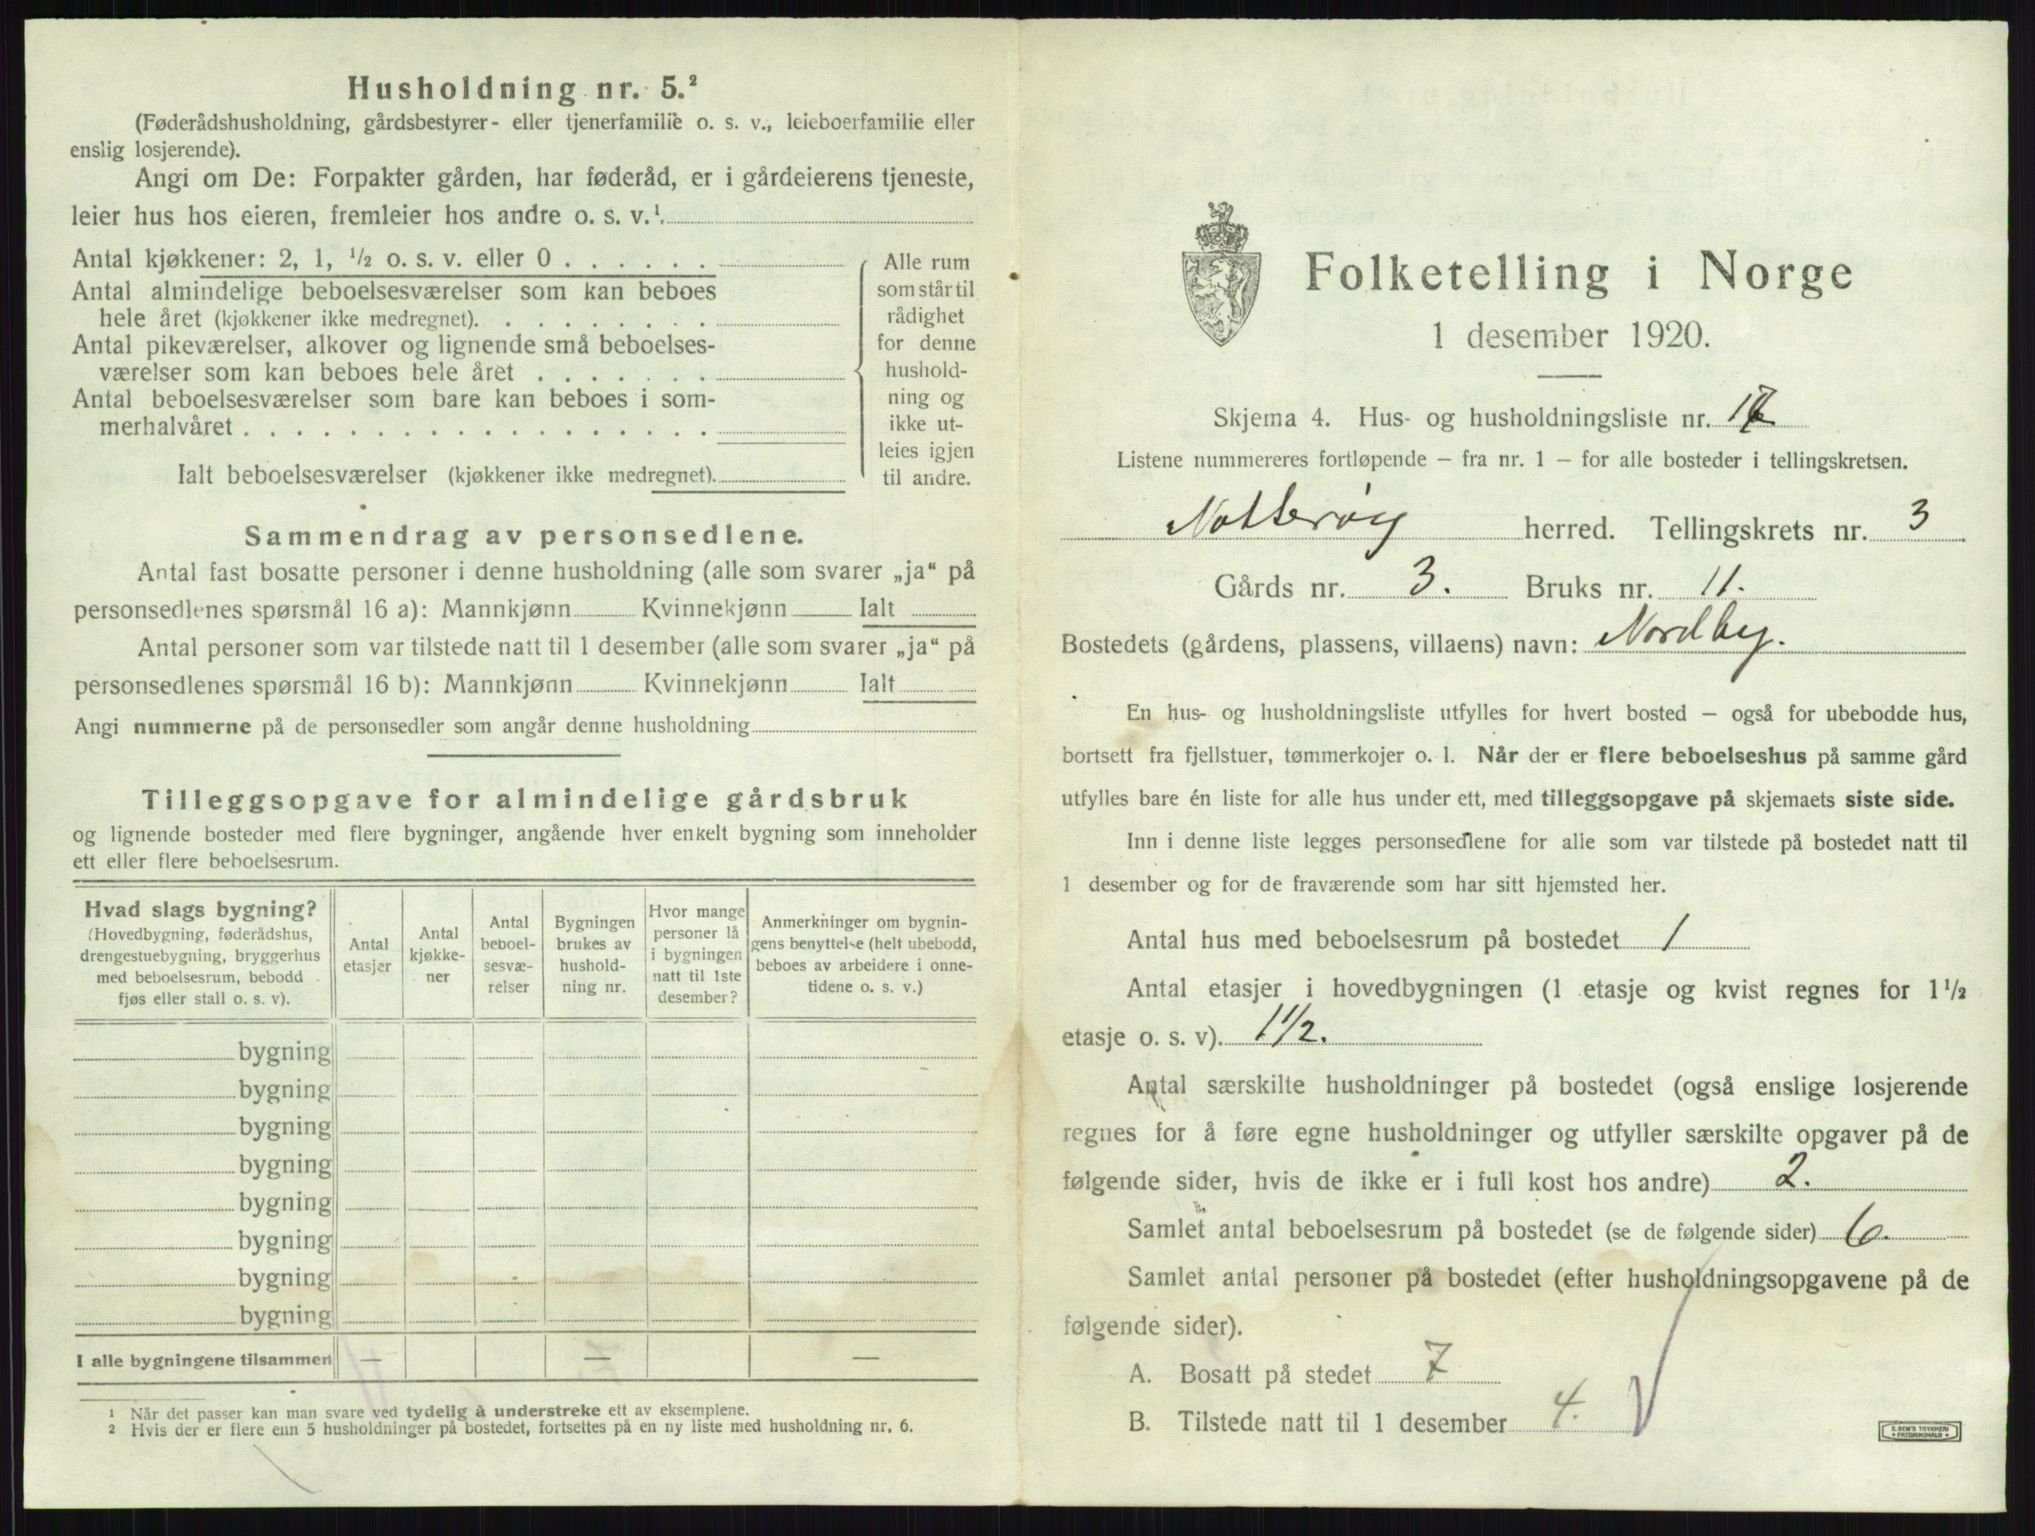 Husholdning nr. 5.²
(Føderådshusholdning, gårdsbestyrer- eller tjenerfamilie o. s. v., leieboerfamilie eller
enslig losjerende).
Angi om De: Forpakter gården, har føderåd, er i gårdeierens tjeneste,
leier hus hos eieren, fremleier hos andre o. s. v.¹
Antal kjøkkener: 2, 1, ½ o. s. v. eller 0 . . . . . .
Antal almindelige beboelsesværelser som kan beboes
hele året (kjøkkener ikke medregnet). . . . . . . . .
Antal pikeværelser, alkover og lignende små beboelses-
værelser som kan beboes hele året . . . . . . .
Antal beboelsesværelser som bare kan beboes i som-
merhalvåret . . . . . . . . . . . . . . . . . .
Ialt beboelsesværelser (kjøkkener ikke medregnet).
Alle rum
som står til
rådighet
for denne
hushold-
ning og
ikke ut-
leies igjen
til andre.
Sammendrag av personsedlene.
Antal fast bosatte personer i denne husholdning (alle som svarer „ja“ på
personsedlenes spørsmål 16 a): Mannkjønn Kvinnekjønn Ialt
Antal personer som var tilstede natt til 1 desember (alle som svarer „ja“ på
personsedlenes spørsmål 16 b): Mannkjønn Kvinnekjønn Ialt
Angi nummerne på de personsedler som angår denne husholdning
Tilleggsopgave for almindelige gårdsbruk
og lignende bosteder med flere bygninger, angående hver enkelt bygning som inneholder
ett eller flere beboelsesrum.
Hvad slags bygning?
(Hovedbygning, føderådshus,
drengestuebygning, bryggerhus
med beboelsesrum, bebodd
fjøs eller stall o. s. v).
Antal
etasjer
Antal
kjøkke-
ner
Antal
beboel-
sesvæ-
relser
Bygningen
brukes av
hushold-
ning nr.
Hvor mange
personer lå
i bygningen
natt til 1ste
desember?
Anmerkninger om bygnin-
gens benyttelse (helt ubebodd,
beboes av arbeidere i onne-
tidene o. s. v.)
bygning
bygning
bygning
bygning
bygning
bygning
bygning
bygning
I alle bygningene tilsammen — — —
¹ Når det passer kan man svare ved tydelig å understreke ett av eksemplene.
² Hvis der er flere enn 5 husholdninger på bostedet, fortsettes på en ny liste med husholdning nr. 6.
Folketelling i Norge
1 desember 1920.
Skjema 4. Hus- og husholdningsliste nr. 17
Listene nummereres fortløpende – fra nr. 1 – for alle bosteder i tellingskretsen.
Nøtterøy herred. Tellingskrets nr. 3
Gårds nr. 3. Bruks nr. 11.
Bostedets (gårdens, plassens, villaens) navn: Nordby.
En hus- og husholdningsliste utfylles for hvert bosted – også for ubebodde hus,
bortsett fra fjellstuer, tømmerkojer o. l. Når der er flere beboelseshus på samme gård
utfylles bare én liste for alle hus under ett, med tilleggsopgave på skjemaets siste side.
Inn i denne liste legges personsedlene for alle som var tilstede på bostedet natt til
1 desember og for de fraværende som har sitt hjemsted her.
Antal hus med beboelsesrum på bostedet 1
Antal etasjer i hovedbygningen (1 etasje og kvist regnes for 1½
etasje o. s. v). 1½.
Antal særskilte husholdninger på bostedet (også enslige losjerende
regnes for å føre egne husholdninger og utfyller særskilte opgaver på de
følgende sider, hvis de ikke er i full kost hos andre) 2.
Samlet antal beboelsesrum på bostedet (se de følgende sider) 6.
Samlet antal personer på bostedet (efter husholdningsopgavene på de
følgende sider).
A. Bosatt på stedet 7
B. Tilstede natt til 1 desember 4.
E. SEM'S TRYKKERI
FREDRIKSHALD